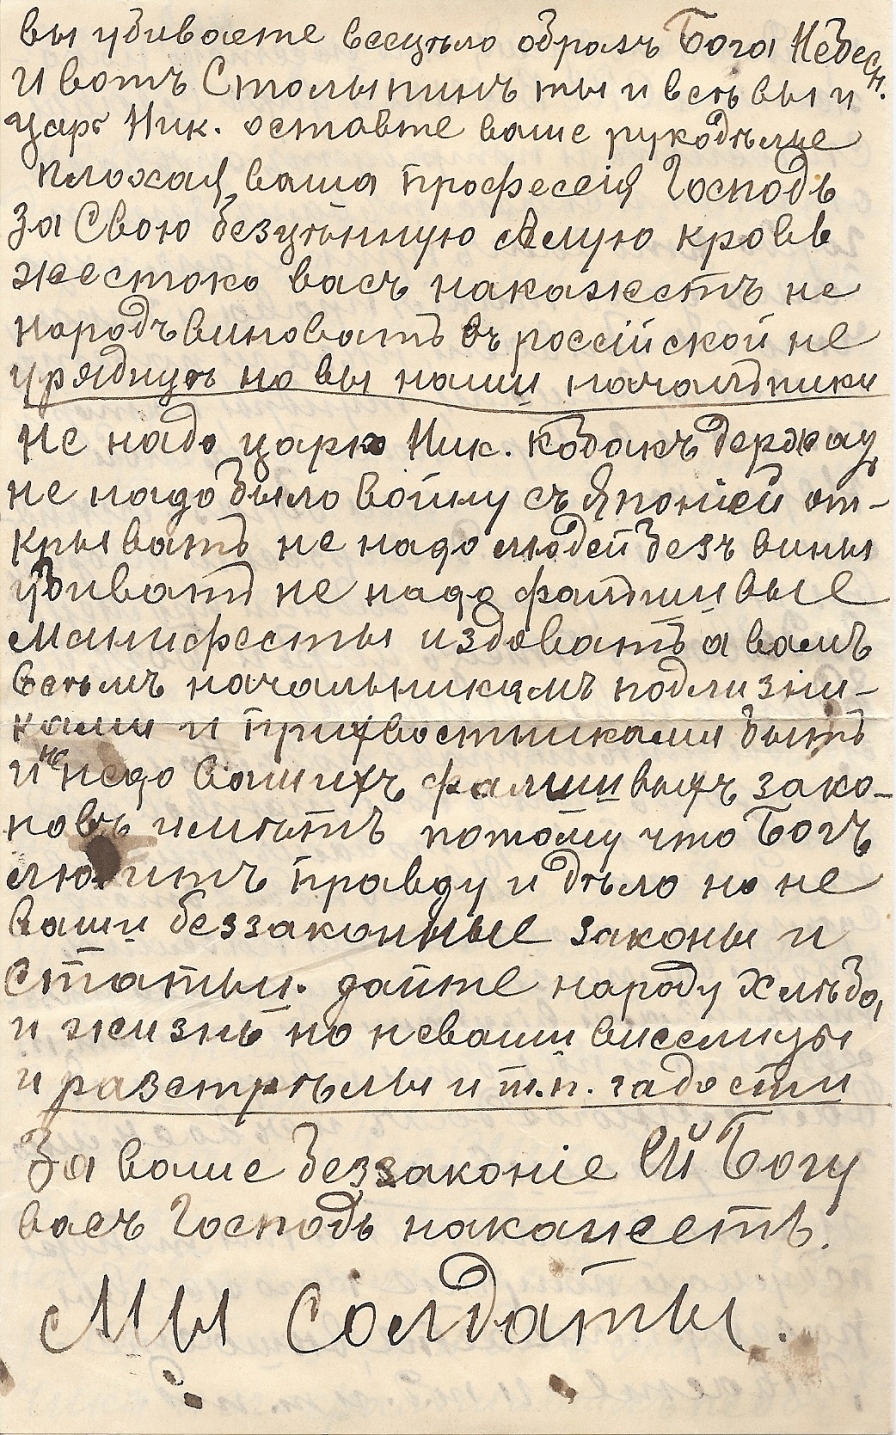 вы убиваете всецѣло образъ Бога Небесн.
И вотъ Столыпинъ ты и всѣ вы и
царь Ник. оставте ваше рукодѣлье
плохая ваша профессія Господь
за Свою безцѣнную алую кровь
жестоко васъ накажетъ не
народъ виноватъ въ россійской не
урядицѣ но вы наши начальники
Не надо царю Ник. кабакъ держать
не надо было войну съ Японіей от-
крывать не надо людей безъ вины
убивать не надо фальшивые
манифесты издовать а вамъ
всѣмъ начальникамъ подлизни-
ками и прихвостниками быть
и не надо вашихъ фалшивыхъ зако-
новъ имѣть потому что Богъ
любитъ правду и дѣло но не
ваши беззаконные законы и
статьи. дайте народу хлѣба,
и жизнь но неваши виселицы
и разстрѣлы и т.п. гадости
За ваше беззаконіе Ей Богу
васъ Господь накажетъ.
Мы Солдаты.